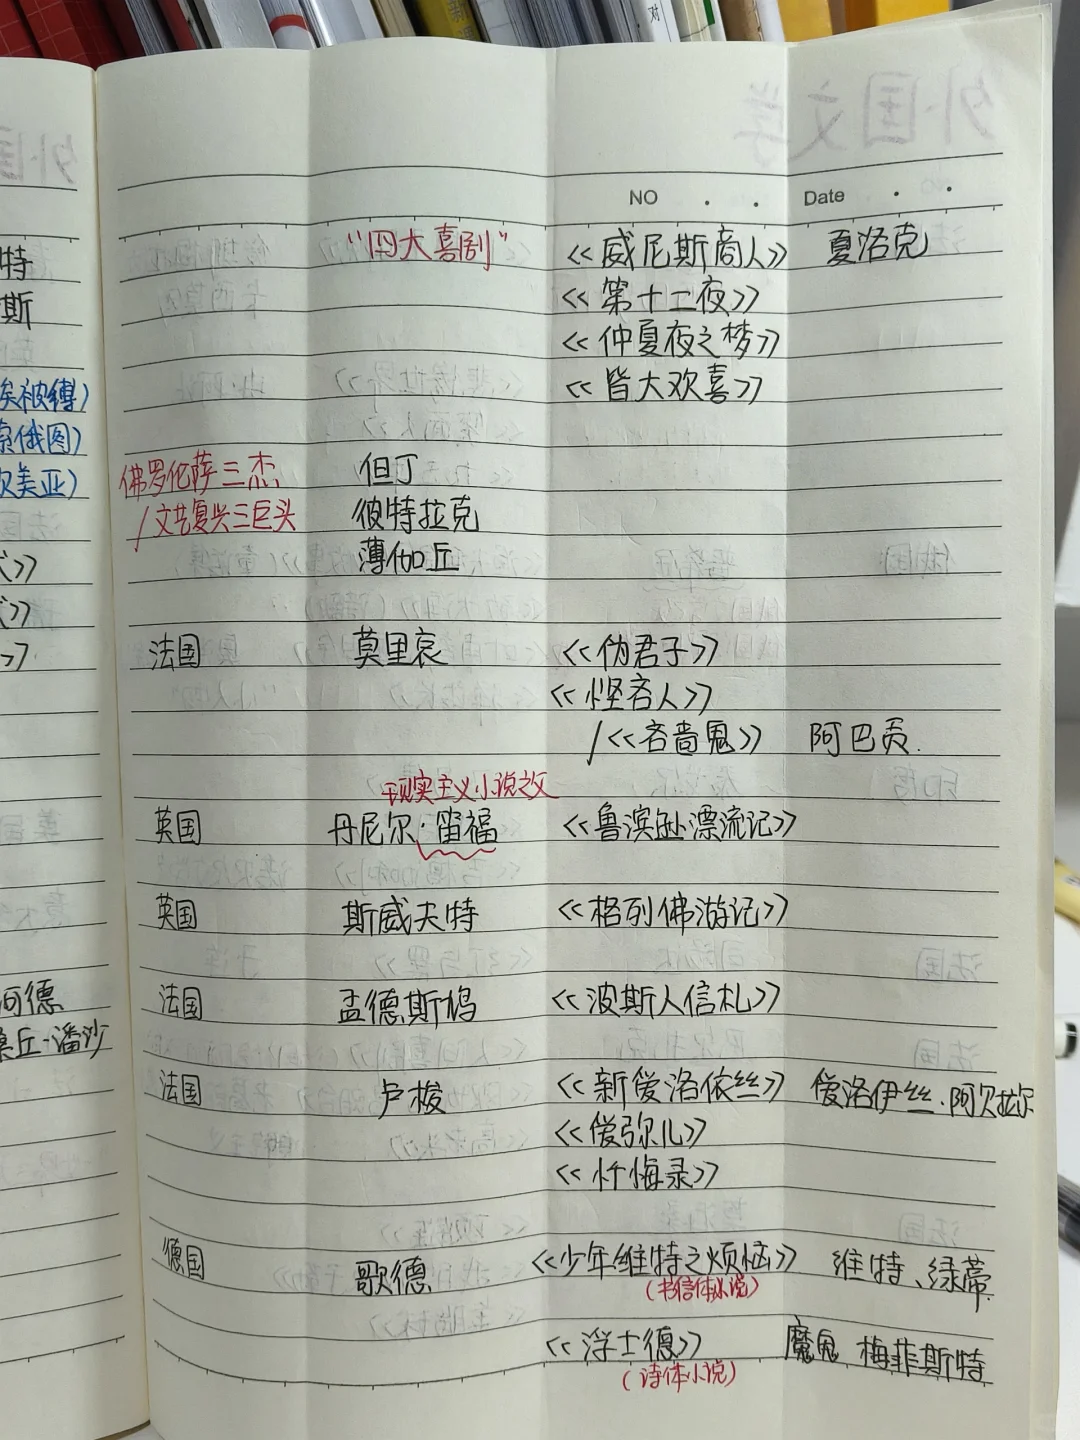 对
NO . . Date . .
"四大喜剧" <<威尼斯商人>> 夏洛克
<<第十二夜>>
<<仲夏夜之梦>>
<<皆大欢喜>>
佛罗伦萨三杰 但丁
/文艺复兴三巨头 彼特拉克
薄伽丘
法国 莫里哀 <<伪君子>>
<<悭吝人>>
/<<吝啬鬼>> 阿巴贡.
现实主义小说之父
英国 丹尼尔·笛福 <<鲁滨逊漂流记>>
英国 斯威夫特 <<格列佛游记>>
法国 孟德斯鸠 <<波斯人信札>>
法国 卢梭 <<新爱洛依丝>> 爱洛伊丝.阿贝拉尔
<<爱弥儿>>
<<忏悔录>>
德国 歌德 <<少年维特之烦恼>> 维特、绿蒂
(书信体小说)
<<浮士德>> 魔鬼 梅菲斯特
(诗体小说)
特
斯
索俄图)
美亚)
>>
>>
>>
阿德
桑丘·潘沙